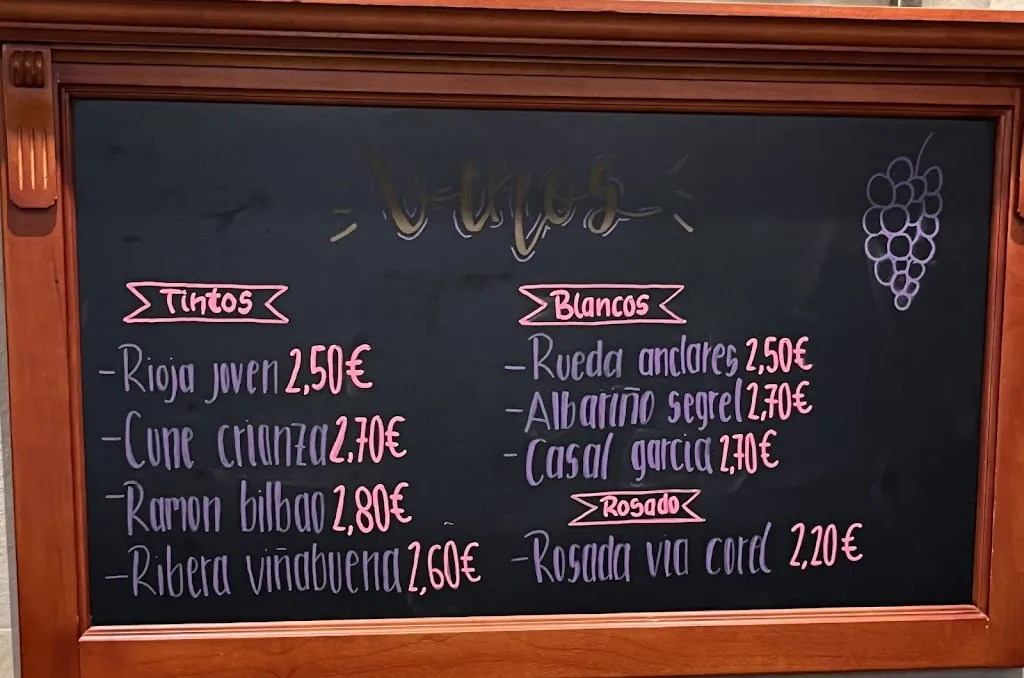 Vinos
Tintos
-Rioja joven 2,50€
-Cune crianza 2,70€
-Ramon bilbao 2,80€
-Ribera viñabuena 2,60€
Blancos
-Rueda anclares 2,50€
-Albariño segrel 2,70€
-Casal garcia 2,70€
Rosado
-Rosada via corel 2,20€